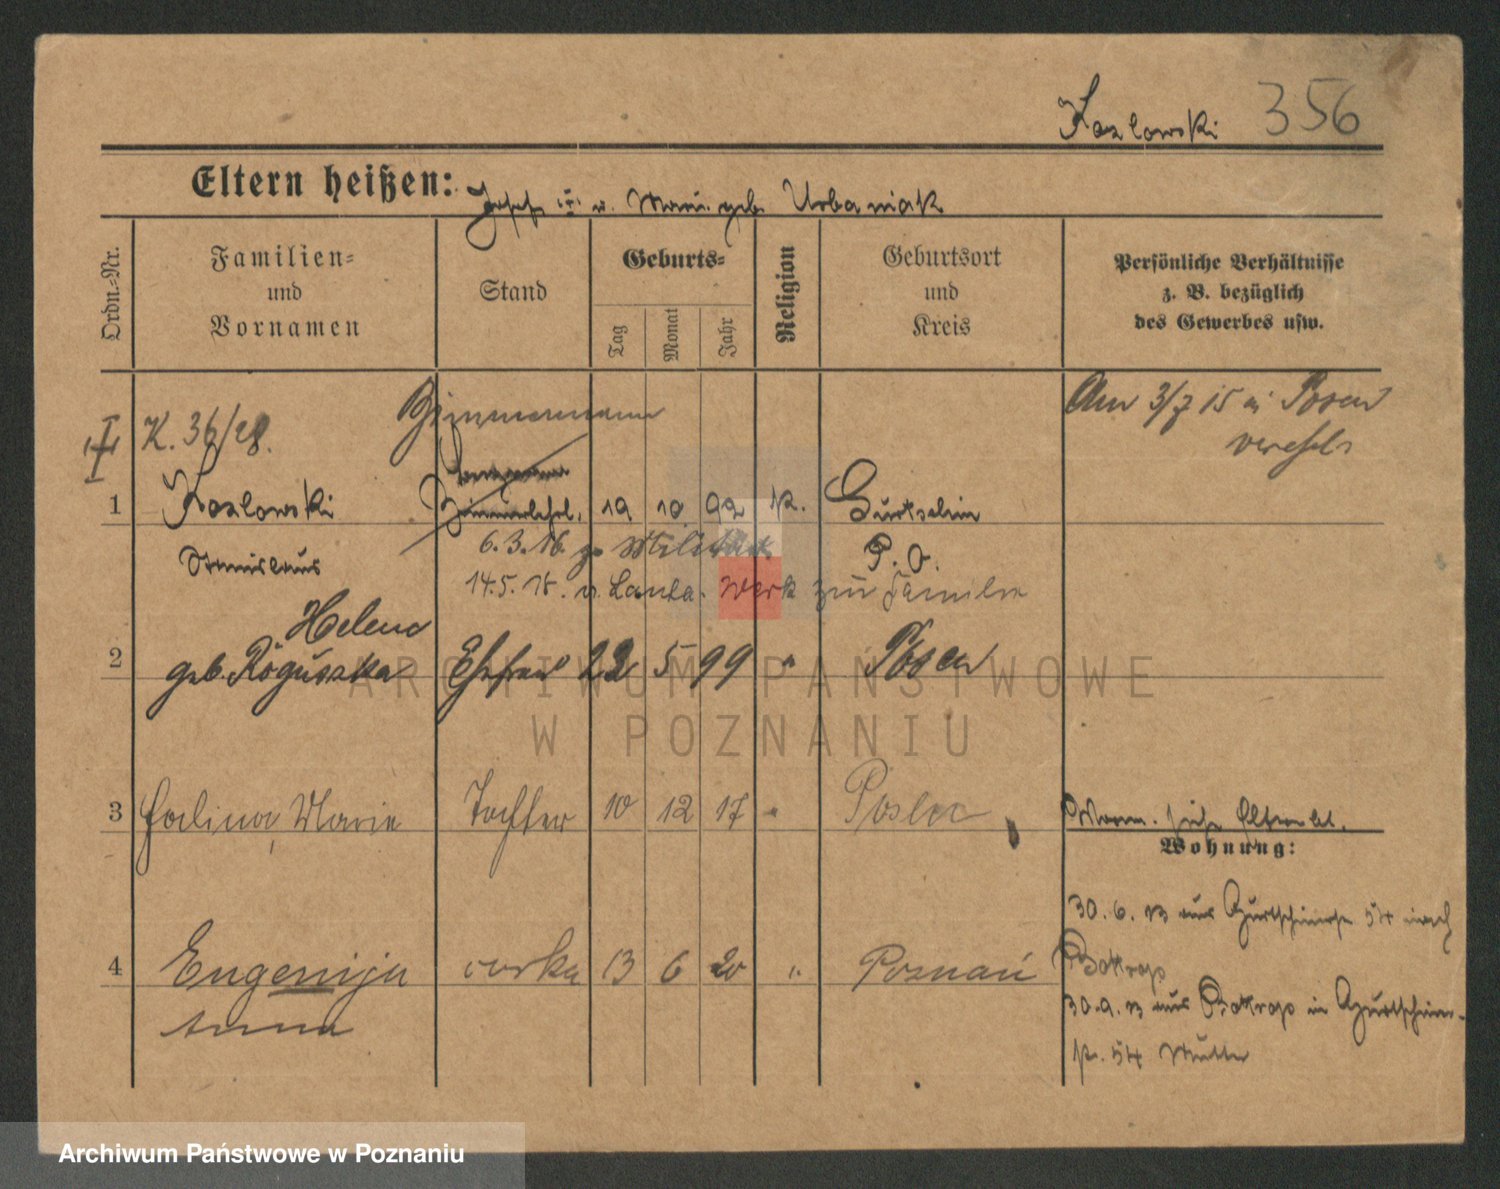 Kozlowski 356
Eltern heißen: Josef u. Marie geb. Urbaniak
Ordn.-Nr.
Familien-
und
Vornamen
Stand
Geburts-
Tag
Monat
Jahr
Religion
Geburtsort
und
Kreis
Persönliche Verhältnisse
z. B. bezüglich
des Gewerbes usw.
I
K. 36/28.
Zimmermann
Am 3/7 15 in Posen
verehel.
1 Kozlowski Zimmerlehrl. 19 10 92 k. Gurtschin
Stanislaus
6.3.16. zu Militär P. O.
14.5.18. v. zur Familie
Helene
2 geb. Roguszka Ehefrau 22 5 99 " Posen
3 Halina, Marie Tochter 10 12 17 " Posen
Wohnung:
30.6.13 aus 54 nach
4 Eugenija corka 13 6 20 " Poznań
Anna
30.9.13 aus in
54 Mutter
ARCHIWUM PAŃSTWOWE
W POZNANIU
Archiwum Państwowe w Poznaniu